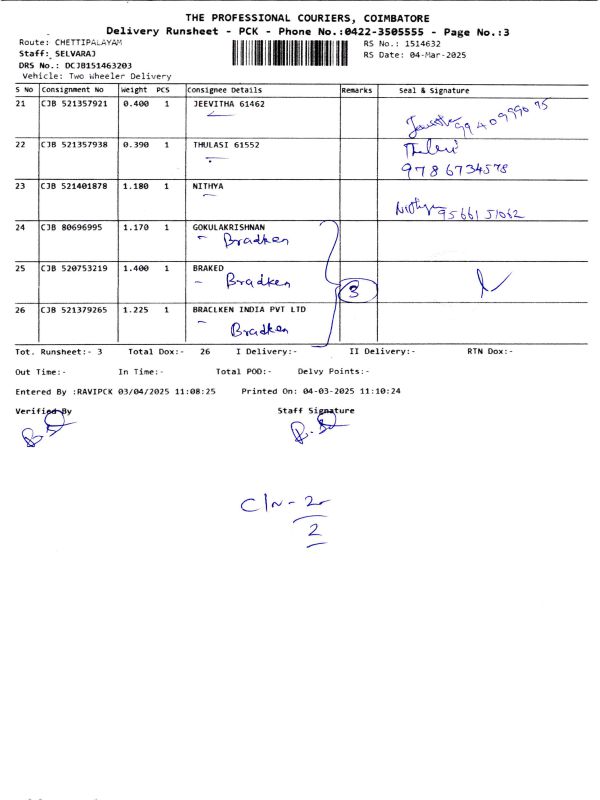 THE PROFESSIONAL COURIERS, COIMBATORE
Delivery Runsheet - PCK - Phone No.:0422-3505555 - Page No.:3
Route: CHETTIPALAYAM RS No.: 1514632
Staff: SELVARAJ RS Date: 04-Mar-2025
DRS No.: DCJB151463203
Vehicle: Two Wheeler Delivery
S No Consignment No Weight PCS Consignee Details Remarks Seal & Signature
21 CJB 521357921 0.400 1 JEEVITHA 61462
22 CJB 521357938 0.390 1 THULASI 61552
9786734578
23 CJB 521401878 1.180 1 NITHYA
Nithya 9566151062
24 CJB 80696995 1.170 1 GOKULAKRISHNAN
Bradken
25 CJB 520753219 1.400 1 BRAKED
Bradken 3
26 CJB 521379265 1.225 1 BRACLKEN INDIA PVT LTD
Bradken
Tot. Runsheet:- 3 Total Dox:- 26 I Delivery:- II Delivery:- RTN Dox:-
Out Time:- In Time:- Total POD:- Delvy Points:-
Entered By :RAVIPCK 03/04/2025 11:08:25 Printed On: 04-03-2025 11:10:24
Verified By Staff Signature
2